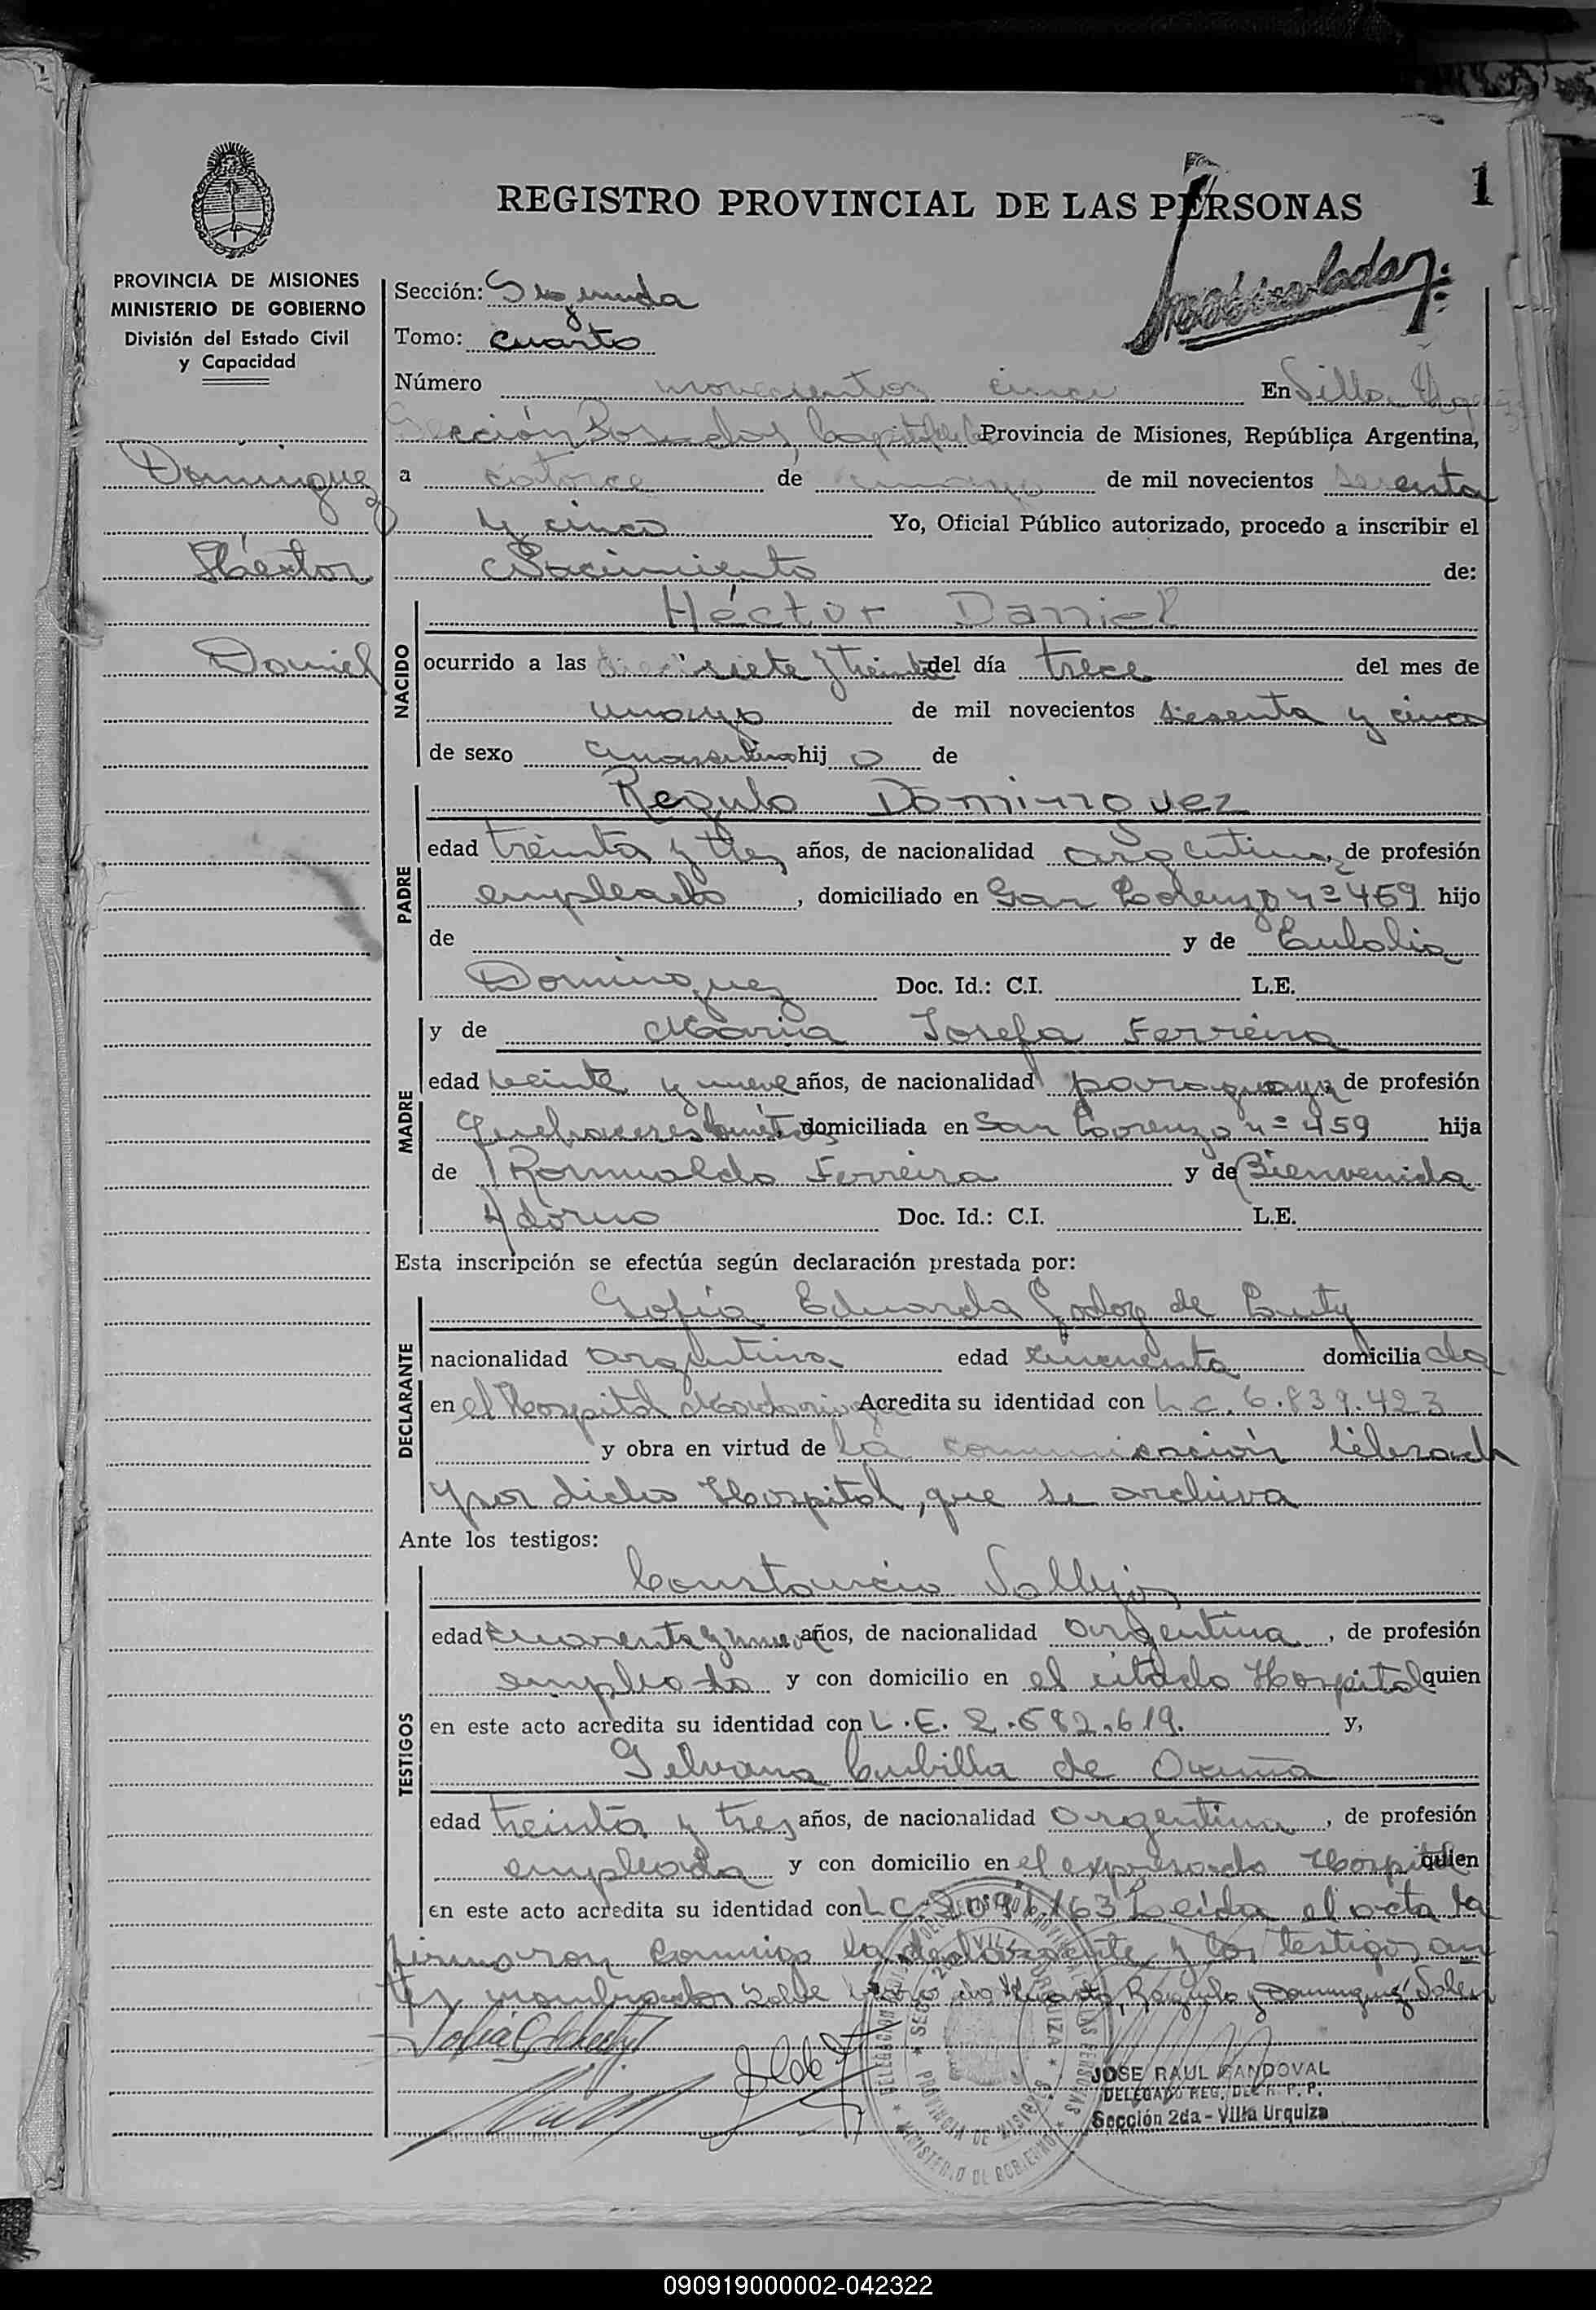 1
REGISTRO PROVINCIAL DE LAS PERSONAS
PROVINCIA DE MISIONES
MINISTERIO DE GOBIERNO
División del Estado Civil
y Capacidad
Sección: Segunda
Tomo: cuarto
Número novecientos cinco En Villa
Sección Posadas, Capital de la Provincia de Misiones, República Argentina,
Dominguez
a catorce de mayo de mil novecientos sesenta
y cinco Yo, Oficial Público autorizado, procedo a inscribir el
Héctor
Nacimiento de:
Daniel
NACIDO
Héctor Daniel
ocurrido a las diecisiete y treinta del día trece del mes de
mayo de mil novecientos sesenta y cinco
de sexo masculino hijo de
PADRE
Regulo Dominguez
edad treinta y tres años, de nacionalidad argentina, de profesión
empleado, domiciliado en San Lorenzo nº 459 hijo
de y de Eulalia
Dominguez Doc. Id.: C.I. L.E.
MADRE
y de Maria Josefa Ferreira
edad veinte y nueve años, de nacionalidad paraguaya de profesión
Quehaceres domésticos domiciliada en San Lorenzo nº 459 hija
de Romualdo Ferreira y de Bienvenida
Adorno Doc. Id.: C.I. L.E.
Esta inscripción se efectúa según declaración prestada por:
DECLARANTE
Sofia Eduarda Godoy de
nacionalidad argentina edad cincuenta domiciliada
en el Hospital Madariaga Acredita su identidad con L.C. 6.839.423
y obra en virtud de la comunicación librada
por dicho Hospital, que se archiva
Ante los testigos:
TESTIGOS
Constancio Vallejos
edad cuarenta y nueve años, de nacionalidad argentina, de profesión
empleado y con domicilio en el citado Hospital quien
en este acto acredita su identidad con L.E. 2.682.619. y,
Gelvana Cubilla de Ocuña
edad treinta y tres años, de nacionalidad argentina, de profesión
empleada y con domicilio en el expresado Hospital quien
en este acto acredita su identidad con L.C. Leida el acta la
firmaron conmigo la declarante y los testigos an
tes nombrados Sobre cuarto, Régulo Dominguez Valen
JOSE RAUL SANDOVAL
DELEGADO REG. DEL R. P. P.
Sección 2da - Villa Urquiza
SECC. 2da VILLA URQUIZA
PROVINCIA DE MISIONES
MINISTERIO DE GOBIERNO
090919000002-042322